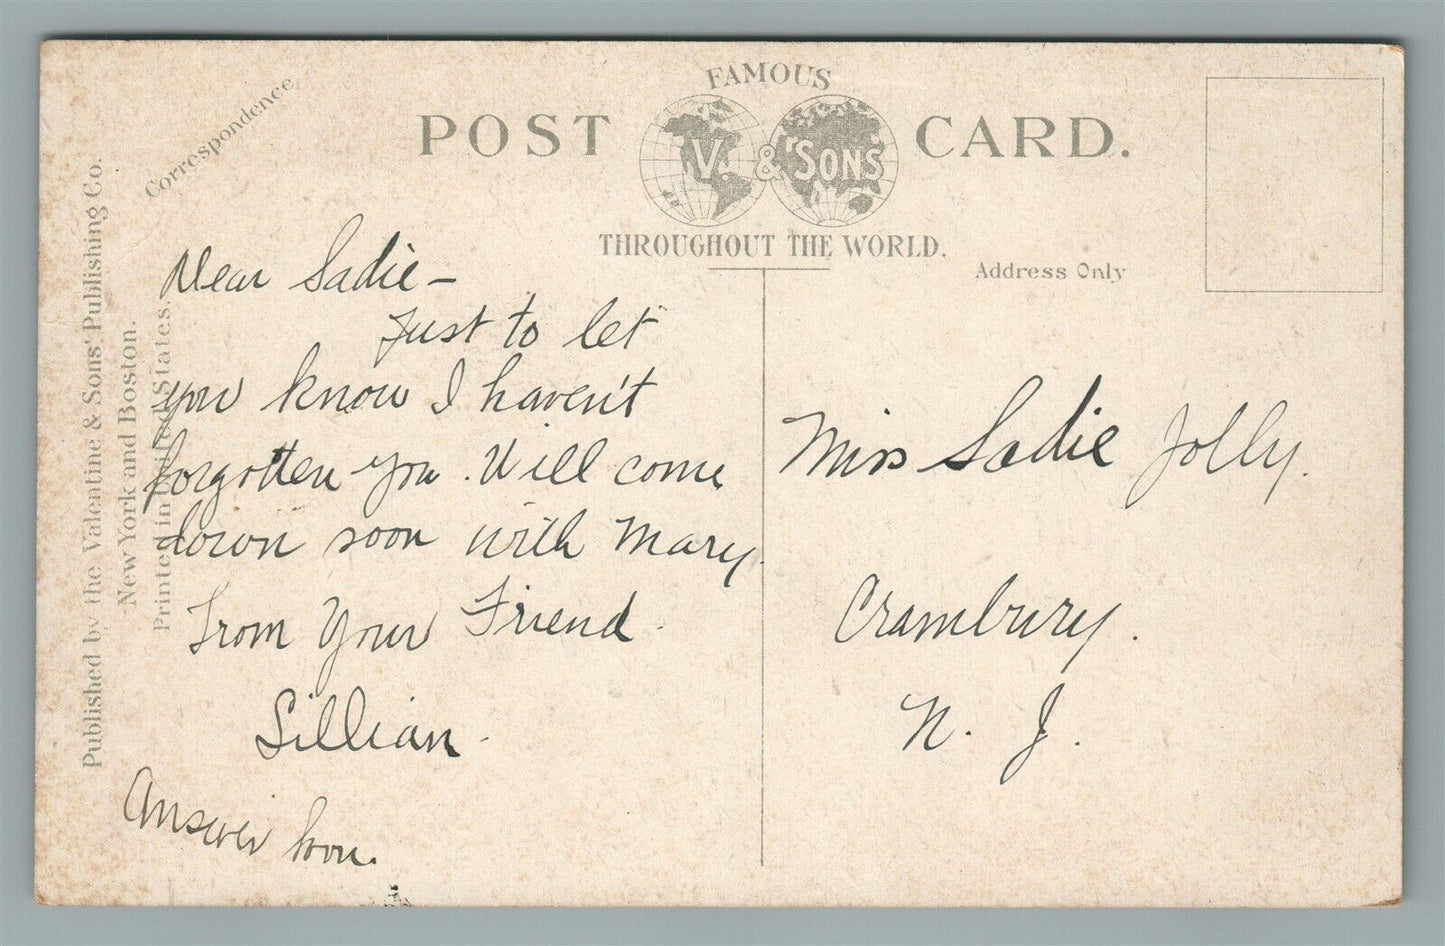 FAMOUS
POST CARD.
V. & SONS
THROUGHOUT THE WORLD.
Correspondence
Address Only
Published by the Valentine & Sons' Publishing Co.
New York and Boston.
Printed in United States.
Dear Sadie –
Just to let
you know I haven't
forgotten you. Will come
down soon with Mary.
From Your Friend
Lillian.
Answer soon.
Miss Sadie Jolly.
Cranbury.
N. J.